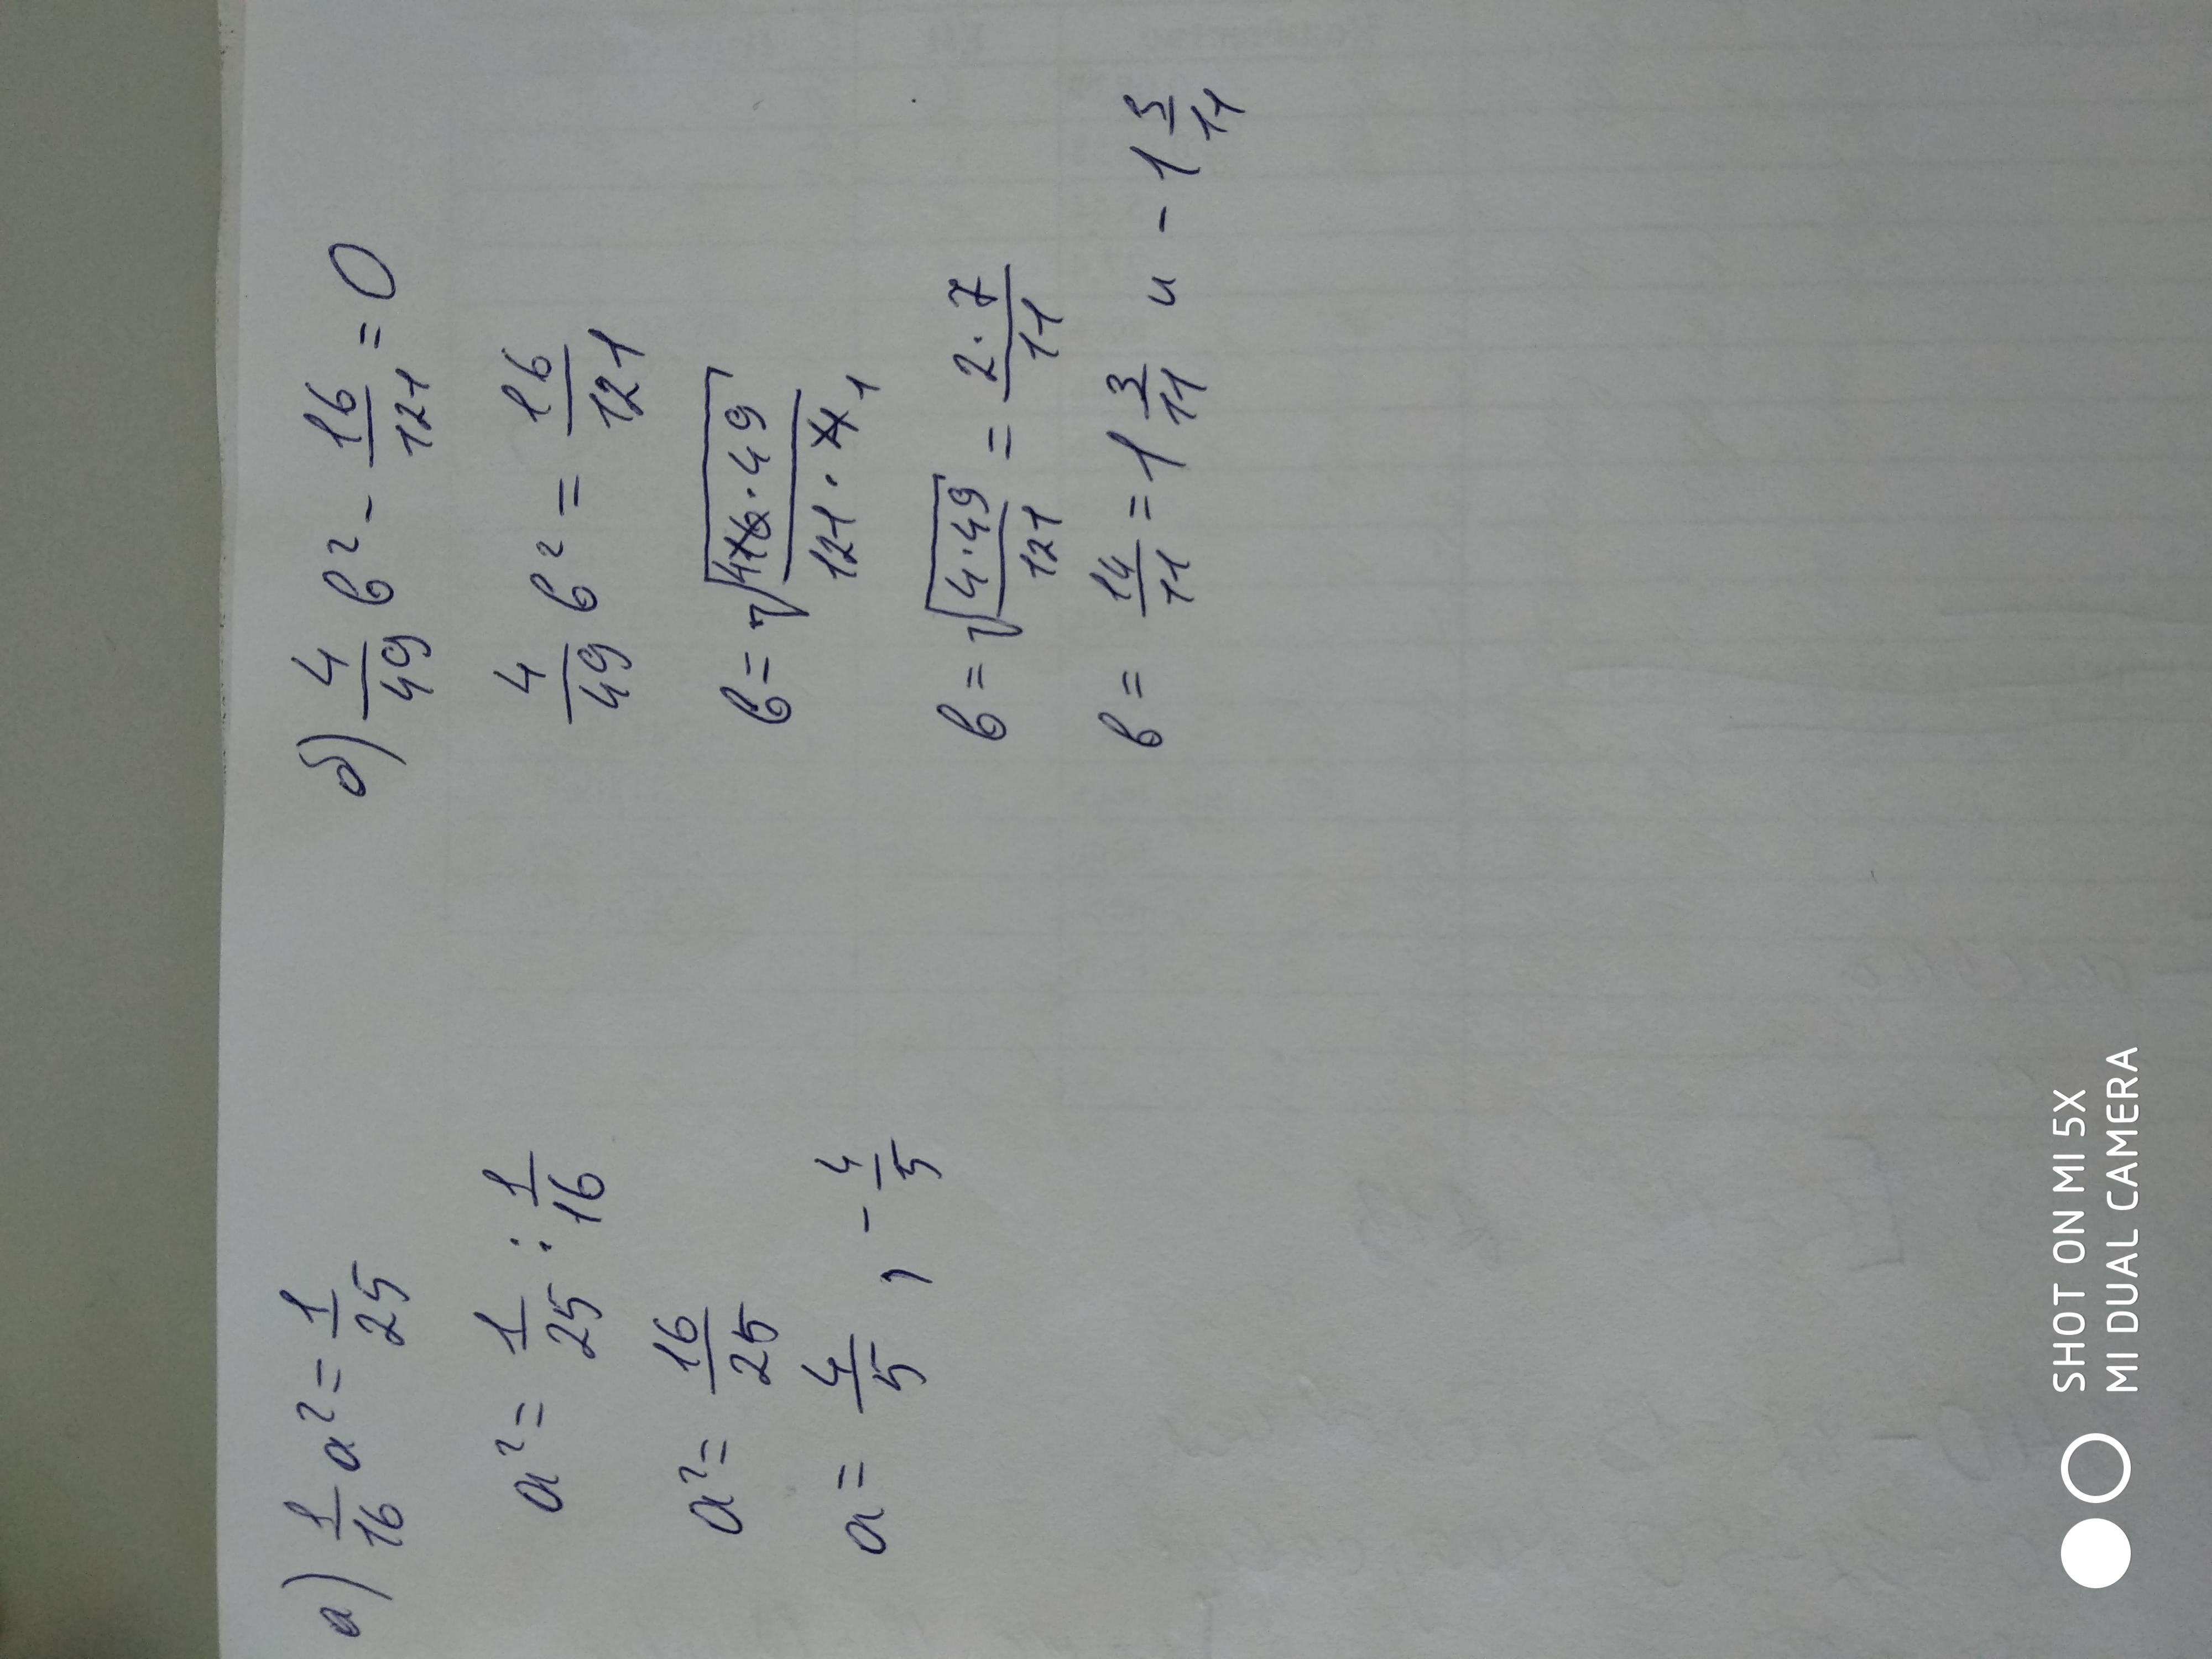 а) 1/16 a² = 1/25
a² = 1/25 : 1/16
a² = 16/25
a = 4/5 , - 4/5
б) 4/49 в² - 16/121 = 0
4/49 в² = 16/121
в = √(416·49/121·4 1)
в = √(4·49/121) = 2·7/11
в = 14/11 = 1 3/11 и - 1 3/11
SHOT ON MI 5X
MI DUAL CAMERA